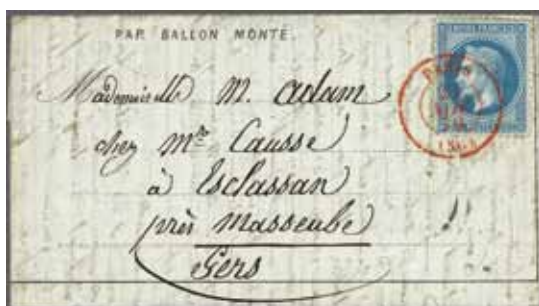 PAR BALLON MONTÉ.
EMPIRE FRANÇAIS
Mademoiselle M. Adam
chez Mme Causse
à Esclassan
près Masseube
Gers
PARIS